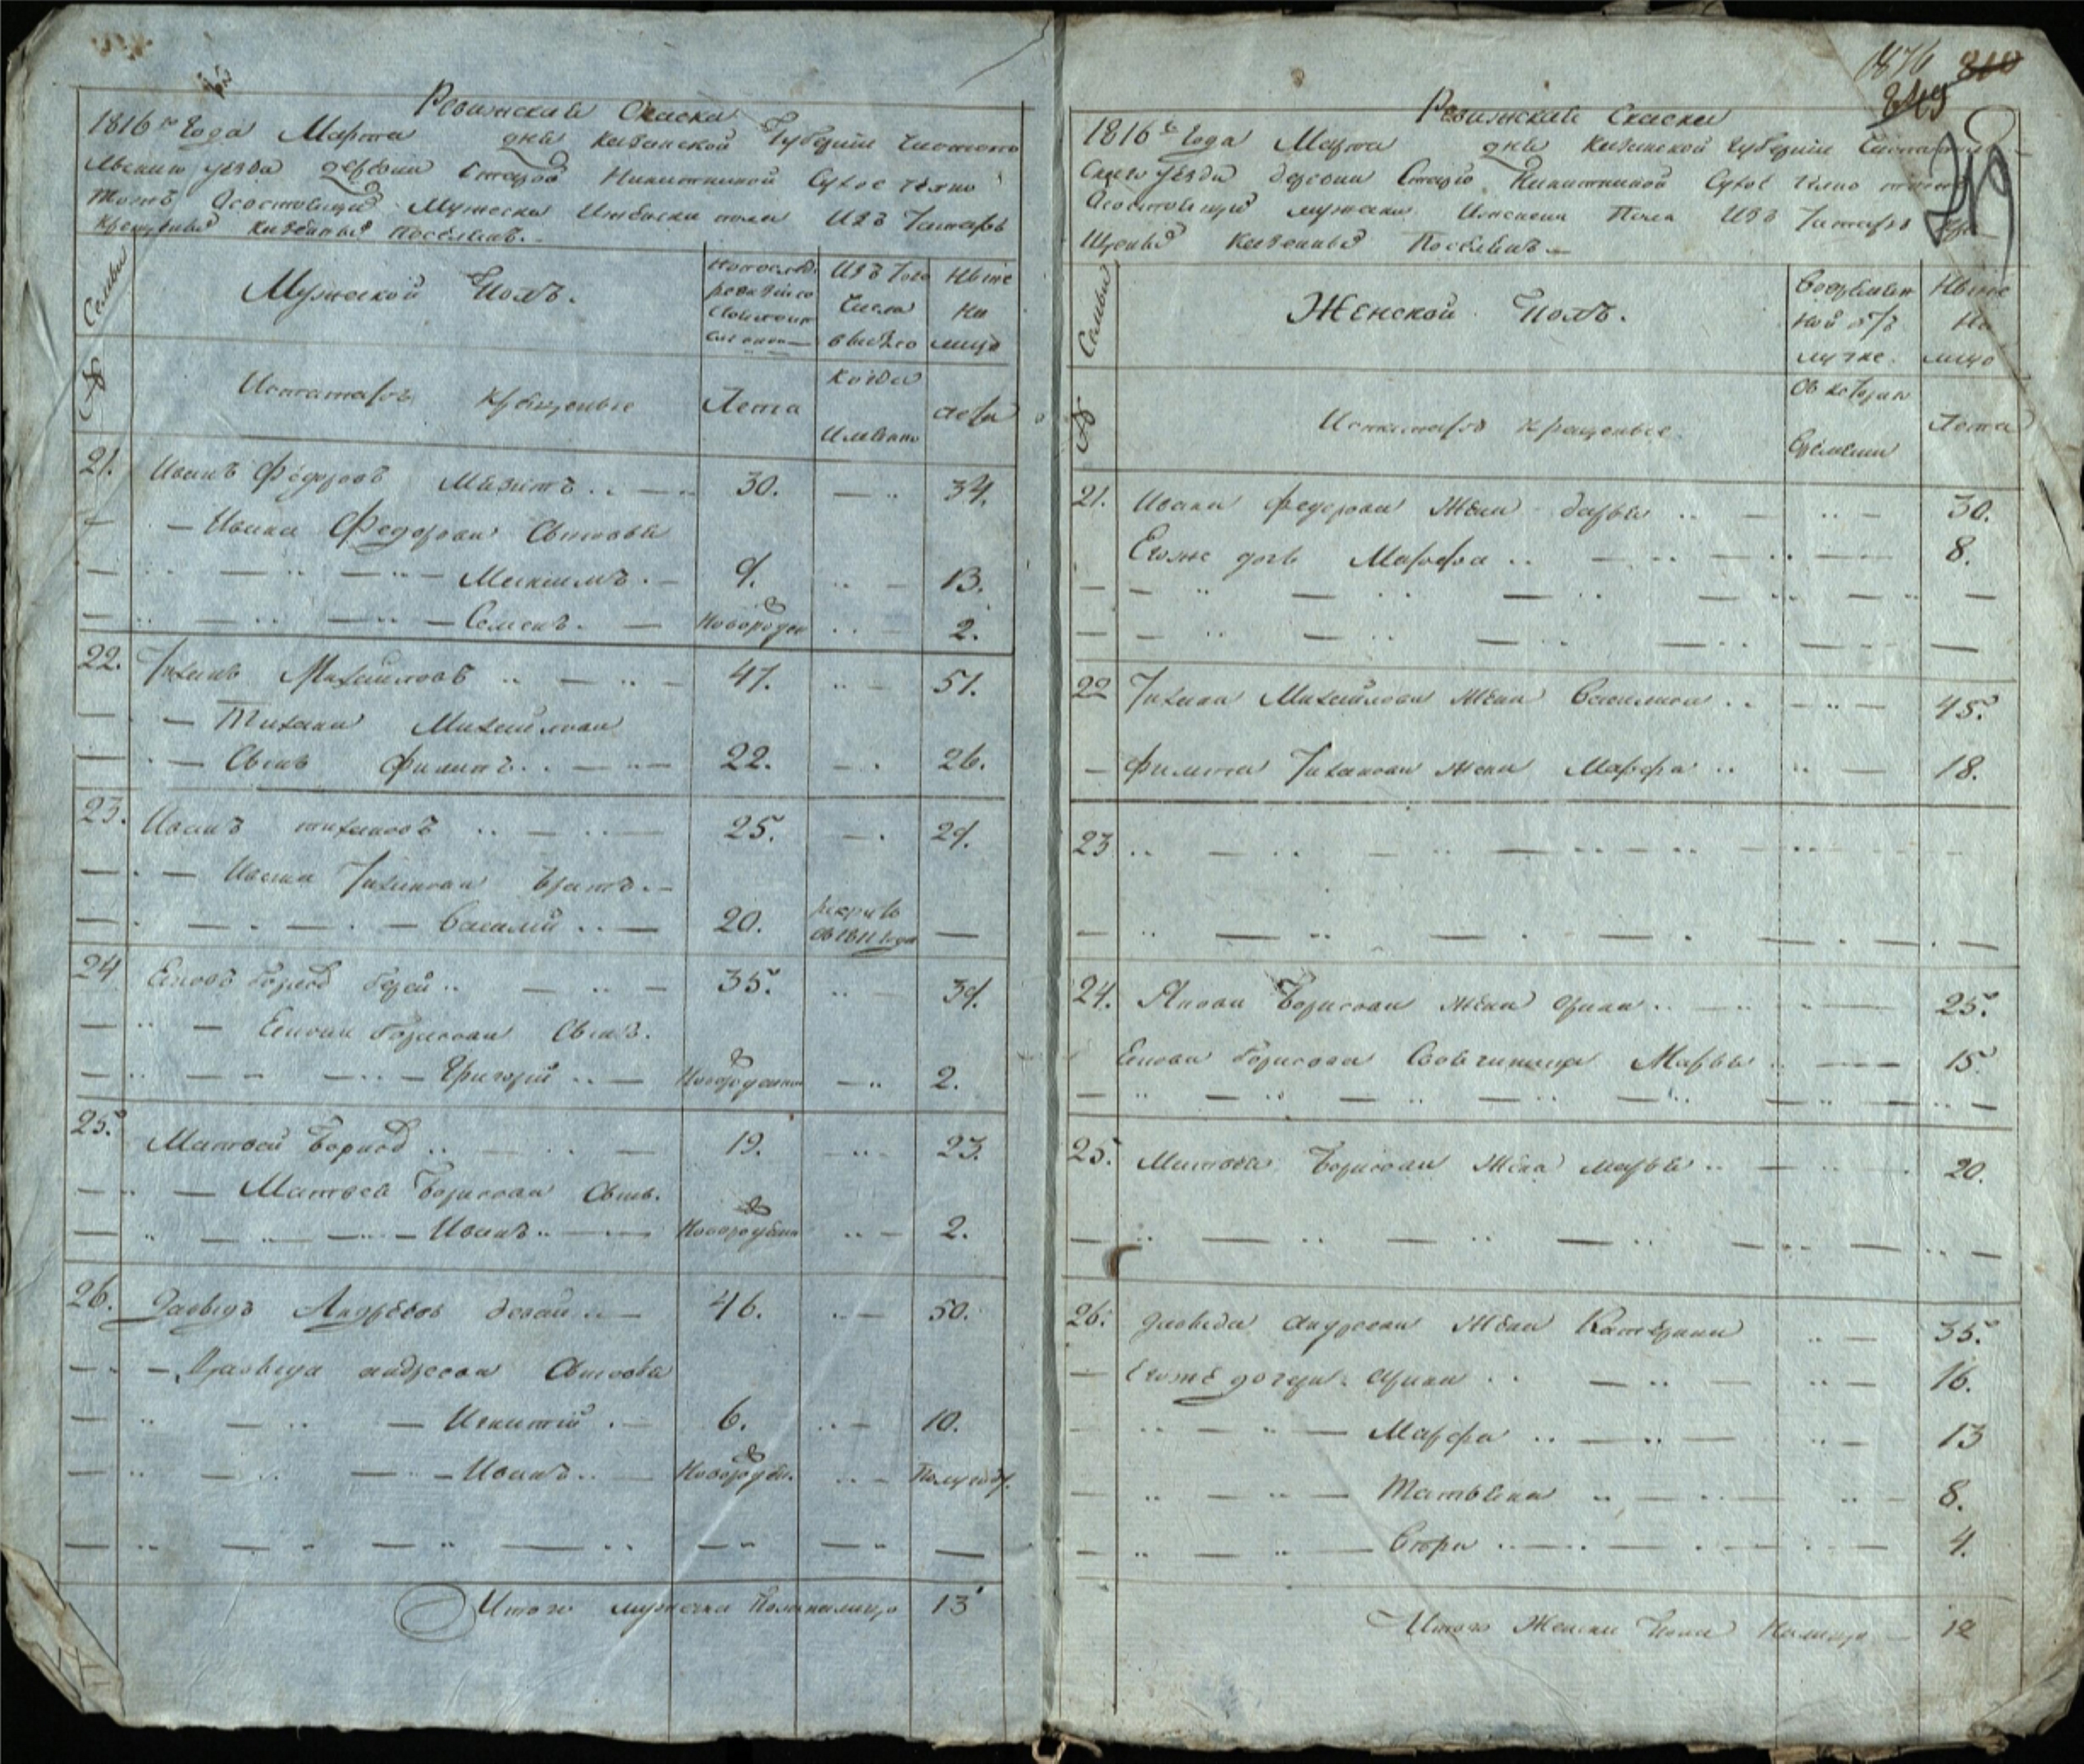 Ревижская Скаска
1816го Года Марта дня Казанской Губернии Чистопо
льского уезда деревни Старой Никиткиной Сухое тожно
тожъ Осостоящих Мужеска Иженска пола Изъ Татаръ
Крещеных казенных поселенъ.
Семьи
Мужеской Полъ.
Изъ Того Числа выбыло
Ныне на лицо
№
Исъ татаръ крещеные
Лета
когда имянно
лета
21. Иванъ Федоровъ 30. 34.
Ивана Федорова Сыновья
Максимъ. 9. 13.
Семенъ. Новорожден 2.
22. Тиханъ Михайловъ 47. 51.
Тихана Михайлова
Сынъ Филипъ. 22. 26.
23. Иванъ тихановъ 25. 29.
Ивана Тиханова братъ.
Василий 20. рекрутъ въ 1811 года
24 Яковъ Борисов 35. 39.
Якова Борисова Сынъ.
Григорий Новорожден 2.
25. Матвей Борисов 19. 23.
Матвея Борисова Сынъ.
Иванъ Новорожден 2.
26. Давыдъ Андреевъ 46. 50.
Давыда андреева Сыновья
Игнатий 6. 10.
Иванъ Новорожден. Полугоду.
Итого мужеска пола налицо 13
1876 810
Ревижская Скаска
1816го Года Марта дня Казанской Губернии Чистопол
ского уезда деревни Старой Никиткиной Сухое тожно тожъ
Осостоящих мужеска Иженска Пола Изъ Татаръ Кре
щеных Казенных Поселенъ
Семьи
Женской Полъ.
Во временной отлучке.
Ныне На лицо
№
Исъ татаръ крещеные
Съ котораго времени
Лета
21. Ивана Федорова Жена дарья 30.
Егоже дочь Марфа 8.
22 Тихана Михайлова Жена Василиса 45.
Филипа Тиханова жена Марфа 18.
23
24. Якова Борисова Жена Орина 25.
Якова Борисова Своячиница Марья 15
25. Матвея Борисова Жена марья 20.
26. давыда андреева Жена Катерина 35.
Егоже дочери Орина 16.
Марфа 13
Татьяна 8.
4.
Итого Женска Пола Налицо 12